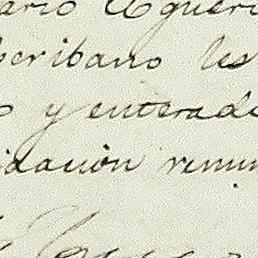 ario Agueri
scribano les
o y enterado
idación renun